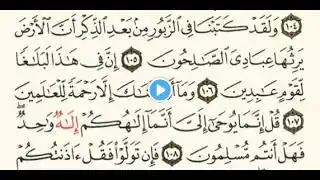 ١٠٤ وَلَقَدْ كَتَبْنَا فِى ٱلزَّبُورِ مِنۢ بَعْدِ ٱلذِّكْرِ أَنَّ ٱلْأَرْضَ
يَرِثُهَا عِبَادِىَ ٱلصَّٰلِحُونَ ١٠٥ إِنَّ فِى هَٰذَا لَبَلَٰغًا
لِّقَوْمٍ عَٰبِدِينَ ١٠٦ وَمَآ إِلَّا رَحْمَةً لِّلْعَٰلَمِينَ
١٠٧ قُلْ إِنَّمَا يُوحَىٰٓ إِلَىَّ أَنَّمَآ إِلَٰهُكُمْ إِلَٰهٌ وَٰحِدٌ ۖ
فَهَلْ أَنتُم مُّسْلِمُونَ ١٠٨ فَإِن تَوَلَّوْا۟ فَقُلْ ءَاذَنتُكُمْ